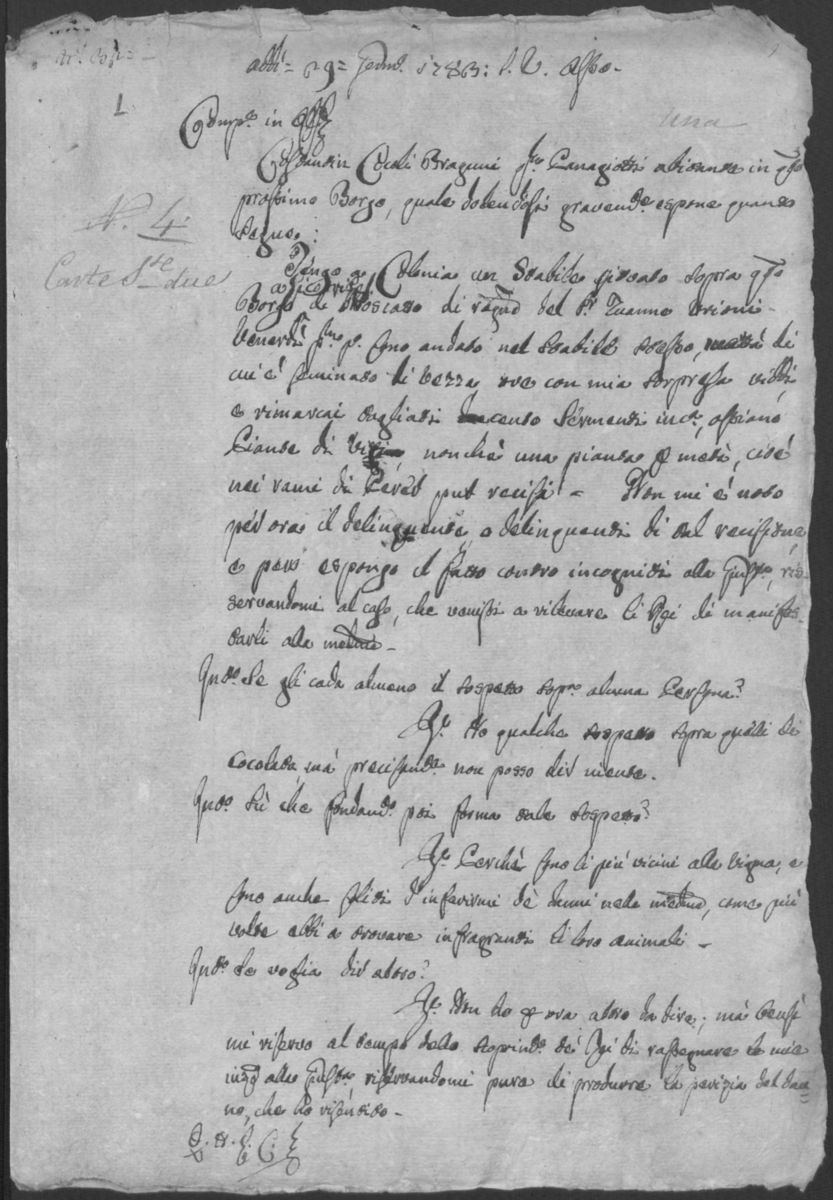 addi 29 Genn.o 1783: S. V. Asso.
1.
una
Comp.e in Off.o
Costandin Cocoli Braguni q.m Panagiotti abitante in q.to
prossimo Borgo, quale dolendosi gravem.te espone quanto
segue:
N. 4
Carte S.te due
Tengo a Colonia un stabile situato sopra q.to
Borgo di del S.r Zuanne
Venerdì p.mo p. sono andato nel stabile stesso, metà di
cui è seminato di bezza, ove con mia sorpresa viddi,
e rimarcai tagliati cento Sermenti in c.a, o siano
Piante di viti, nonchè una pianta e metà, cioè
nei rami di Perèr pur recisi - Non mi è noto
per ora il delinquente, o delinquenti di tal recisione,
e però espongo il fatto contro incogniti alla Giust.a, ris-
servandomi al caso, che venissi a rilevare li Rei di manifes-
tarli alla med.ma -
Int.o Se gli cada almeno il sospetto sop.a alcuna Persona?
R.e Ho qualche sospetto sopra quelli di
Cocolata, mà precisam.te non posso dir niente.
Int.o Sù che fondam.to poi forma tale sospetto?
R.e Perchè sono li più vicini alla vigna, e
sono anche soliti d'inferirmi de danni nella med.ma, come più
volte ebbi a trovare infragranti li loro animali -
Int.o Se voglia dir altro?
R.e Non ho p. ora altro da dire; mà bensì
mi riservo al tempo dello scoprim.to dei Rei di rassegnare le mie
alla Giust.a, risservandomi pure di produrre la perizia del dan-
no, che ho risentito -